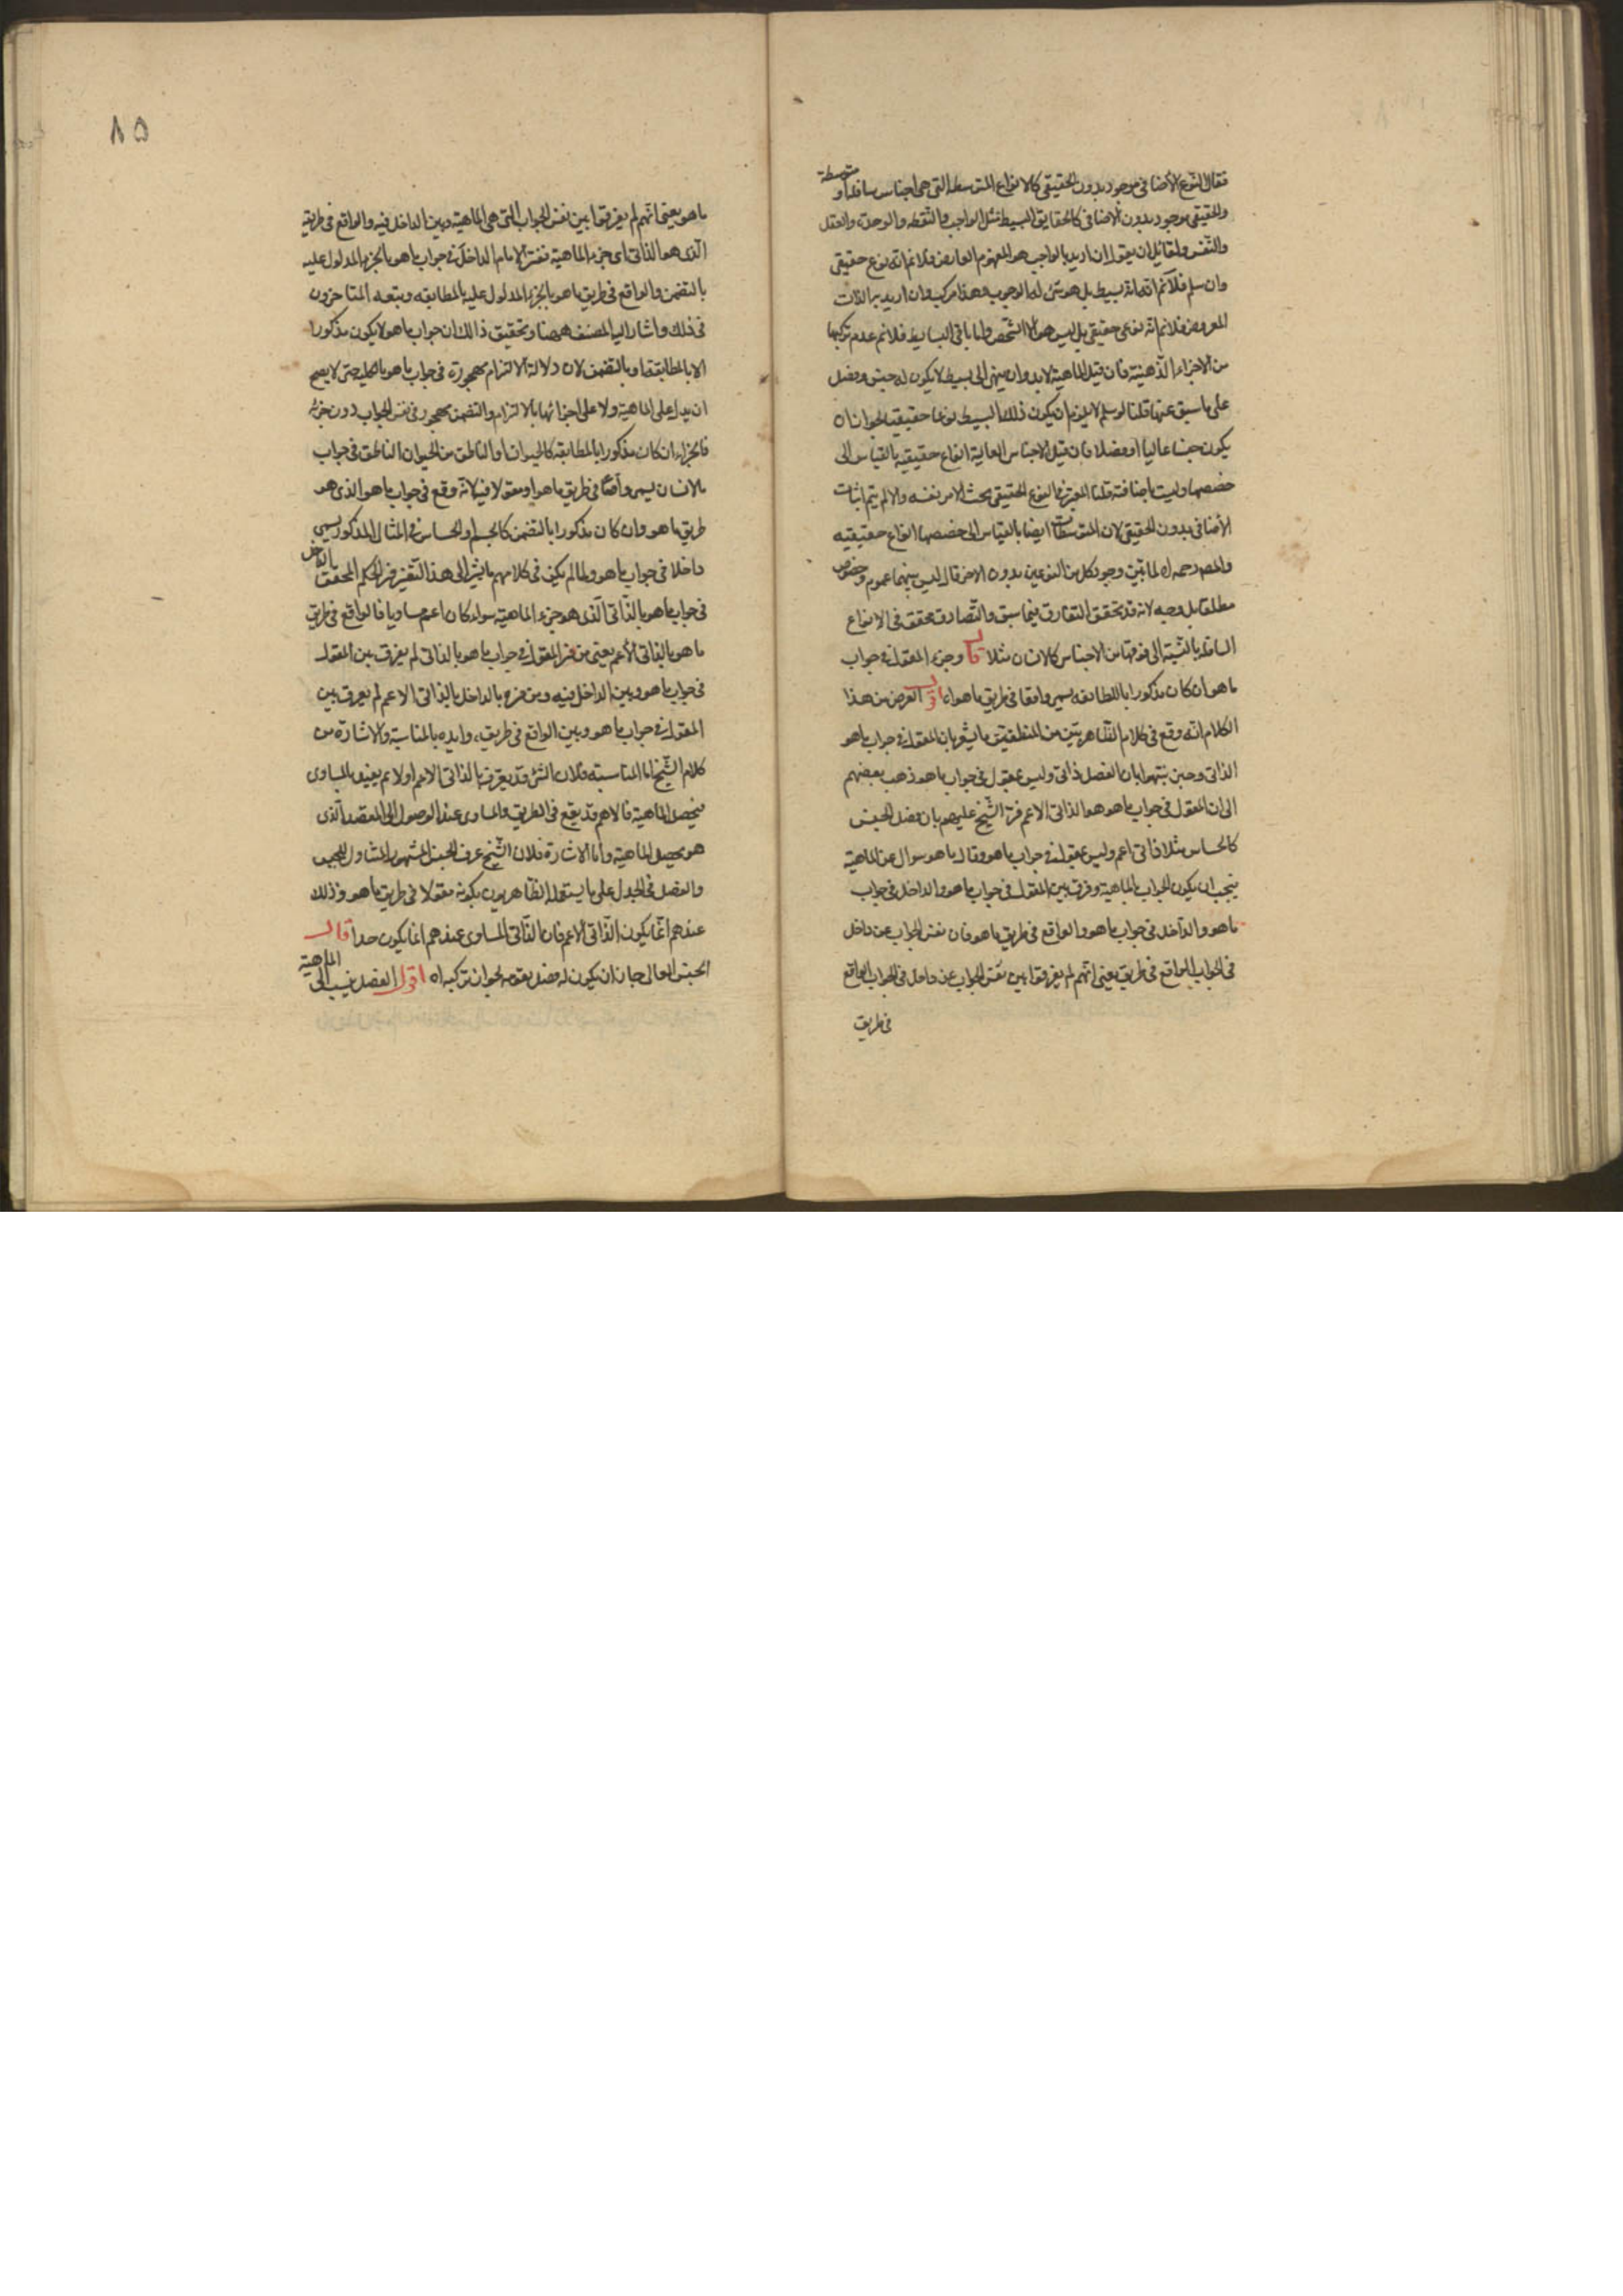 فقال النوع الأضافى موجود بدون الحقيقى كالانواع المتوسطة التى هى اجناس سافلة او متوسطة
والحقيقى موجود بدون الاضافى كالحقايق البسيطة مثل الواجب والنقطه والوحدة والعقل
والنفس ولقائل ان يقول ان اريد بالواجب هو المفهوم العارض فلانم انه نوع حقيقى
وان سلم فلانم انه بسيط بل هو شئ له الوجوب وهذا مركب وان اريد به الذات
المعروضه فلانم انه نوعى حقيقى بل ليس هو الا الشخص واما باقى البسايط فلانم عدم تركبها
من الاجزاء الذهنية فان قيل الماهية لابد وان ينتهى الى بسيط لا يكون له جنس وفصل
على ما سبق عنها قلنا لو سلم لا يلزم ان يكون ذلك البسيط نوعا حقيقيا لجواز ان
يكون جنسا عاليا او فصلا فان قيل الاجناس العالية انواع حقيقيه بالقياس الى
حصصها وليست باضافية قلنا المعتبر فى النوع الحقيقى بحث الامر نفسه والا لم يتم اثبات
الأضافى بدون الحقيقى لان المتوسطات ايضا بالقياس الى حصصها انواع حقيقيه
والمص رحمه اه لما بين وجود كل من النوعين بدون الاخر قال ليس بينهما عموم وخصوص
مطلقا بل وجه لانه قد تحقق التفارق فيما سبق والتصادق محقق فى الانواع
السافلة بالنسبة الى فوقها من الاجناس كالانسان مثلا قال وجزء المقول فى جواب
ما هو ان كان مذكورا بالمطابقه يسمى واقعا فى طريق ما هو اه اقول الغرض من هذا
الكلام انه وقع فى كلام الظاهريين من المنطقيين ما يشعر بان المقول فى جواب ما هو
الذاتى وحين نبهوا بان الفصل ذاتى وليس بمقول فى جواب ما هو ذهب بعضهم
الى ان المقول فى جواب ما هو هو الذاتى الاعم فرد الشيخ عليهم بان فصل الجنس
كالحساس مثلا ذاتى اعم وليس بمقول فى جواب ما هو وقال ما هو سوال عن الماهية
فيجب ان يكون الجواب بالماهية وفرق بين المقول فى جواب ما هو والداخل فى جواب
ما هو والداخل فى جواب ما هو والواقع فى طريق ما هو فان نفس الجواب عن داخل
فى الجواب الواقع فى طريق يعنى انهم لم يفرقوا بين نفس الجواب عن داخل فى الجواب الواقع
فى طريق
٨٥
ما هو يعنى انهم لم يفرقوا بين نفس الجواب التى هى الماهية وبين الداخل فيه والواقع فى طريقه
الذى هو الذاتى اى جزء الماهية ففسر الامام الداخل فى جواب ما هو بالجزء المدلول عليه
بالتضمن والواقع فى طريق ما هو بالجزء المدلول عليه بالمطابقه وتبعه المتاخرون
فى ذلك واشار اليه المصنف ههنا وتحقيق ذالك ان جواب ما هو لا يكون مذكورا
الا بالمطابقة او بالتضمن لان دلالة الالتزام مهجورة فى جواب ما هو بالكلية حتى لا يصح
ان يدل على الماهية ولا على اجزائها بالالتزام والتضمن مهجور فى نفس الجواب دون جزئه
فالجزء ان كان مذكورا بالمطابقه كالحيوان او الناطق من الحيوان الناطق فى جواب
ما الانسان يسمى واقعا فى طريق ما هو او مقولا فيه لانه وقع فى جواب ما هو الذى هو
طريق ما هو وان كان مذكورا بالتضمن كالجسم او الحساس فى المثال المذكور يسمى
داخلا فى جواب ما هو ولما لم يكن فى كلامهم ما يشير الى هذا التفسير فسر الحكيم المحقق الداخل
فى جواب ما هو بالذاتى الذى هو جزء الماهية سواء كان اعم او مساويا فالواقع فى طريق
ما هو بالذاتى الأعم يعنى من فسر المقول فى جواب ما هو بالذاتى لم يفرق بين المقول
فى جواب ما هو وبين الداخل فيه ومن صرح بالداخل بالذاتى الاعم لم يفرق بين
المقول فى جواب ما هو وبين الواقع فى طريقه، وايده بالمناسبة والاشارة من
كلام الشيخ اما المناسبة فلان الشئ قد يعرف بالذاتى الاعم اولا ثم يقيد بالمساوى
فيحصل الماهية فالاعم قد يقع فى الطريق والمساوى عند الوصول الى المقصد الذى
هو تحصيل الماهية واما الاشارة فلان الشيخ عرف الجنس المشهور المتناول للجنس
والفصل فى الجدل على ما يستعمله الظاهريون بكونه مقولا فى طريق ما هو وذلك
عندهم انما يكون الذاتى الاعم فان الذاتى المساوى عندهم انما يكون حدا قال
الجنس العالى جاز ان يكون له فصل يقومه لجواز تركبه اه اقول الفصل ينسب الى الماهية